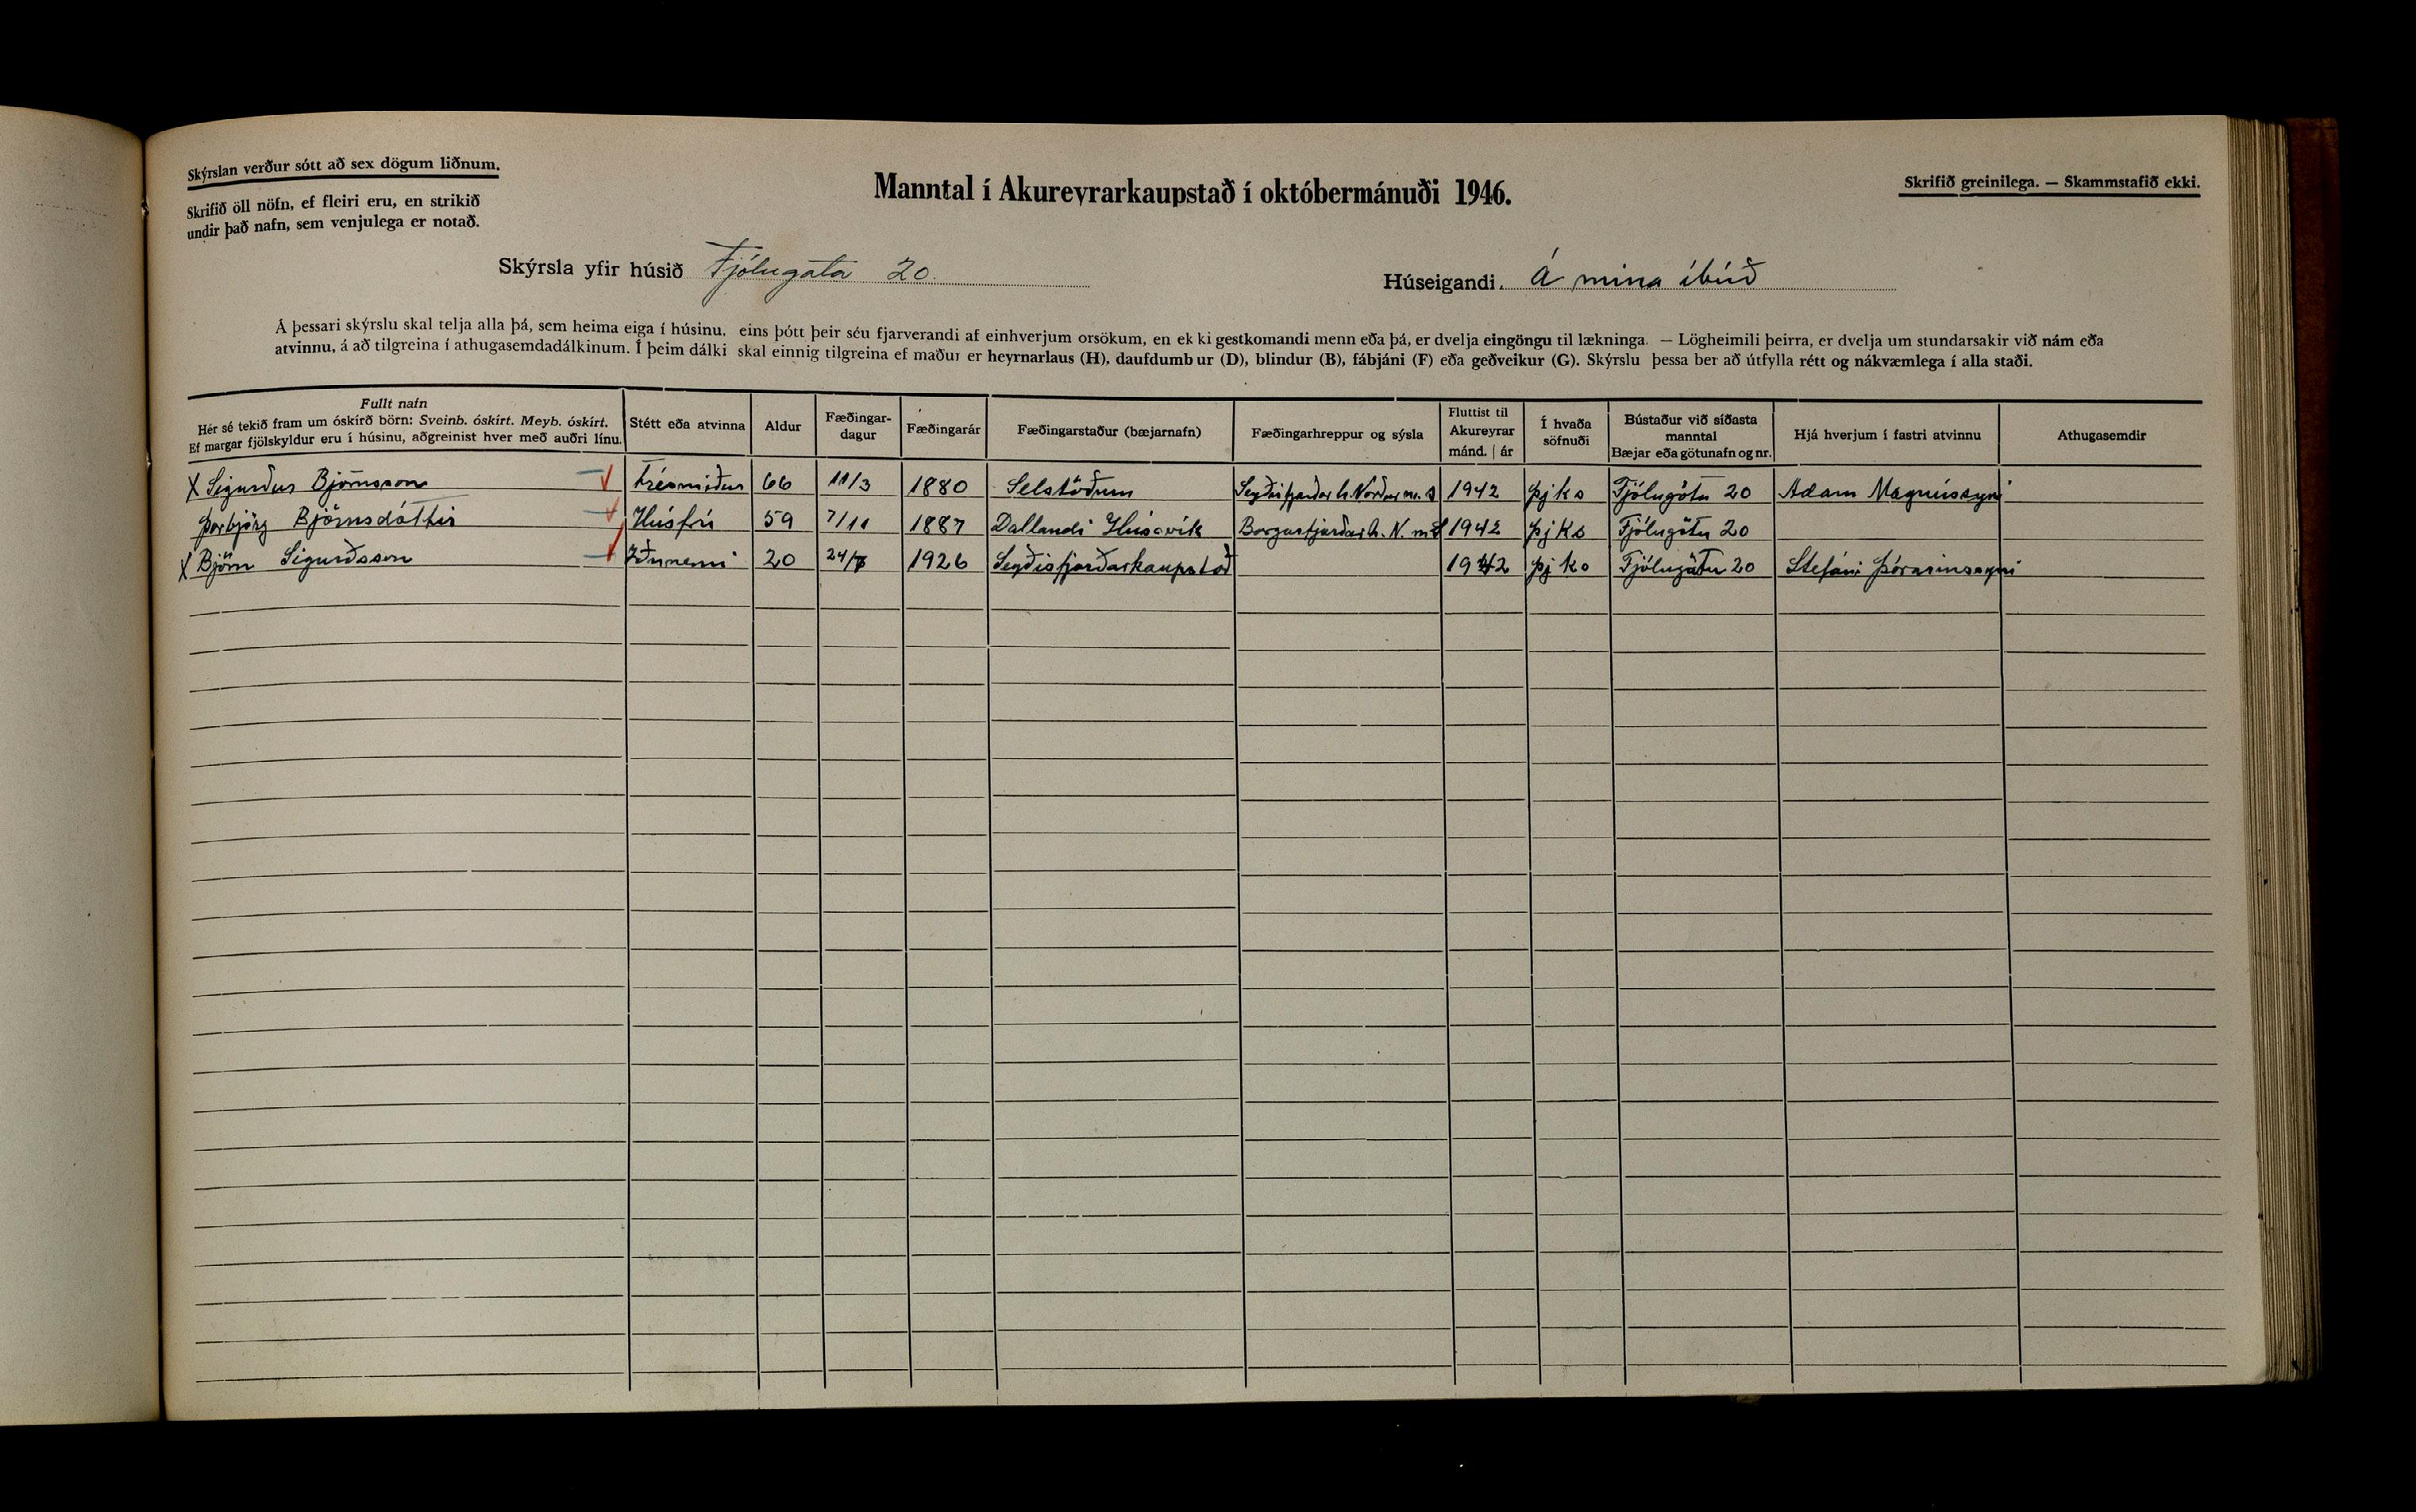 Skýrslan verður sótt að sex dögum liðnum.
Skrifið öll nöfn, ef fleiri eru, en strikið
undir það nafn, sem venjulega er notað.
Manntal í Akureyrarkaupstað í októbermánuði 1946.
Skrifið greinilega. — Skammstafið ekki.
Skýrsla yfir húsið Fjólugata 20.
Húseigandi. Á mina íbúð
Á þessari skýrslu skal telja alla þá, sem heima eiga í húsinu, eins þótt þeir séu fjarverandi af einhverjum orsökum, en ek ki gestkomandi menn eða þá, er dvelja eingöngu til lækninga. — Lögheimili þeirra, er dvelja um stundarsakir við nám eða
atvinnu, á að tilgreina í athugasemdadálkinum. Í þeim dálki skal einnig tilgreina ef maður er heyrnarlaus (H), daufdumb ur (D), blindur (B), fábjáni (F) eða geðveikur (G). Skýrslu þessa ber að útfylla rétt og nákvæmlega í alla staði.
Fullt nafn
Hér sé tekið fram um óskírð börn: Sveinb. óskírt. Meyb. óskírt.
Ef margar fjölskyldur eru í húsinu, aðgreinist hver með auðri línu.
Stétt eða atvinna
Aldur
Fæðingar-
dagur
Fæðingarár
Fæðingarstaður (bæjarnafn)
Fæðingarhreppur og sýsla
Fluttist til
Akureyrar
mánd. | ár
Í hvaða
söfnuði
Bústaður við síðasta
manntal
Bæjar eða götunafn og nr.
Hjá hverjum í fastri atvinnu
Athugasemdir
X Sigurður Björnsson Trésmiður 66 11/3 1880 Selstöðum Seyðisfjarðar h. Norður m. s 1942 Þjks Fjólugötu 20 Adam Magnússyni
Þorbjörg Björnsdóttir Húsfrú 59 7/11 1887 Dallandi Húsavík Borgarfjarðarh. N. m 1942 Þjks Fjólugötu 20
X Björn Sigurðsson Iðnnemi 20 24/7 1926 Seyðisfjarðarkaupstað 1942 Þjks Fjólugötu 20 Stefáni Þórarinssyni